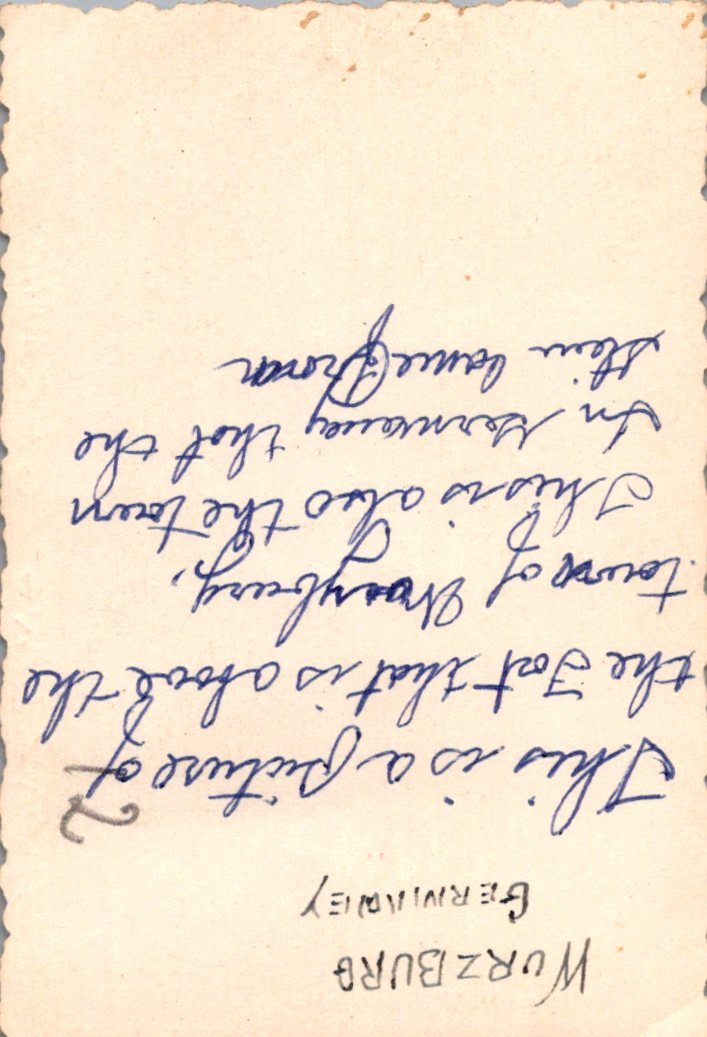 WURZBURG
GERMANEY
2
This is a picture of
the Fort that is above the
town of Wurzburg,
This is also the town
In Germaney that the
stein came From